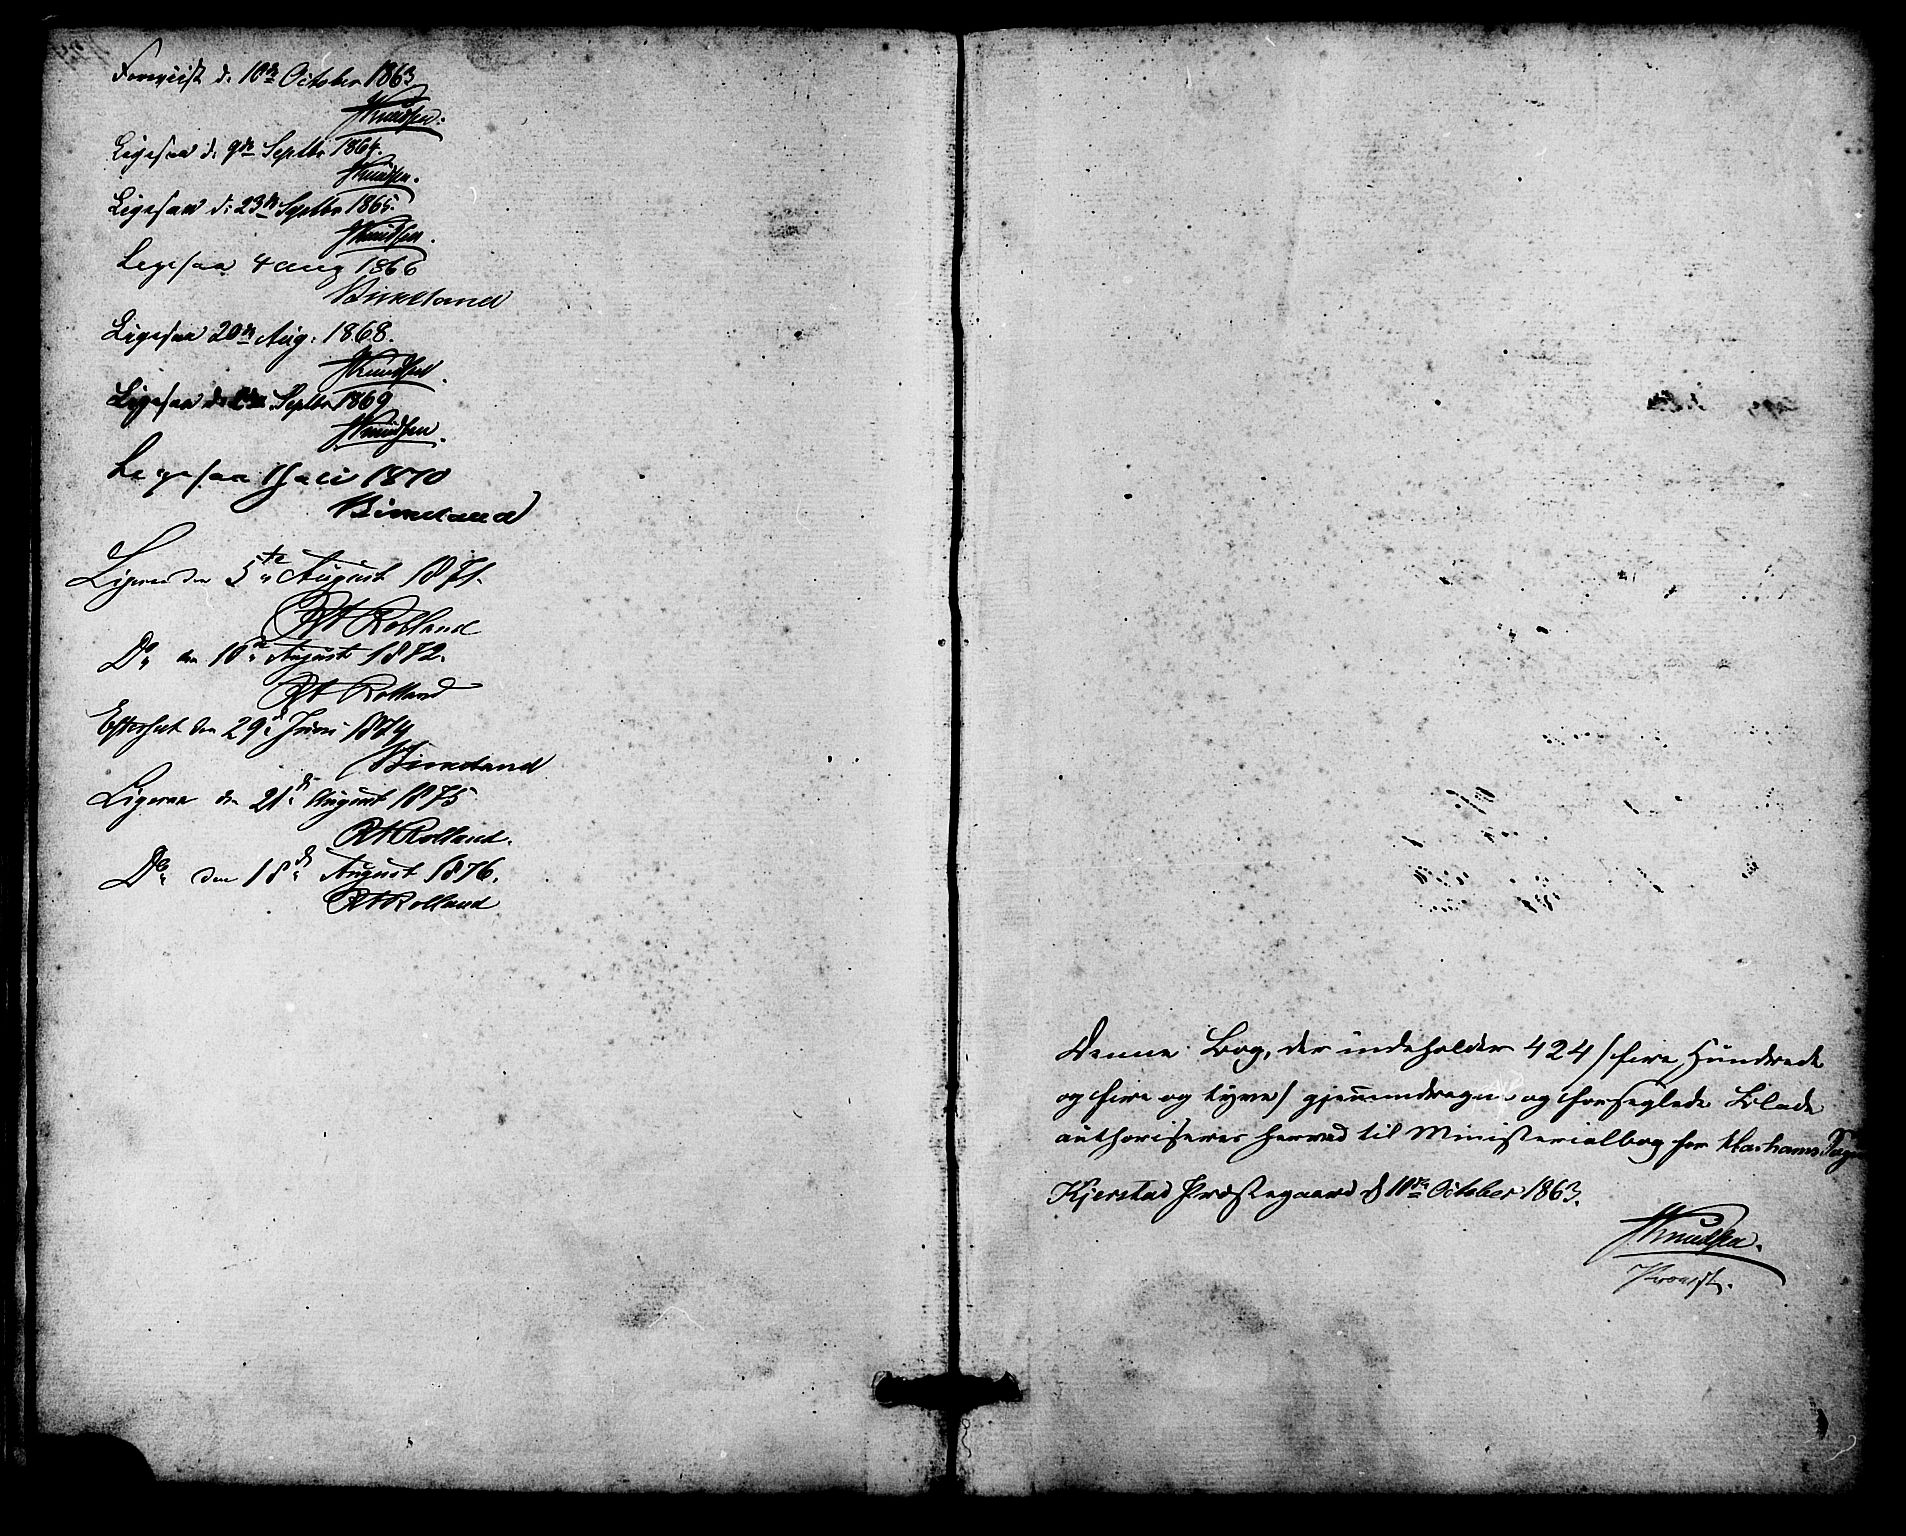 Foreviist d. 10de October 1863
JKnudsen.
Ligesaa d. 9de Septbr 1864.
JKnudsen.
Ligesaa d. 23de Septbr 1865.
JKnudsen.
Ligesaa 4 aug 1866
Birkeland
Ligesaa 20de Aug. 1868.
JKnudsen.
Ligesaa d. Septbr 1869
JKnudsen.
Ligesaa 1 Juli 1870
Birkeland
Ligesaa den 5te August 1871.
Rolland
Do den 10de August 1872.
Rolland
Efterseet den 29de Juni 1874
Birkeland
Ligesaa den 21de August 1875
Rolland.
Do den 18de August 1876.
Rolland
Denne Bog, der indeholder 424 /fire Hundrede
og fire og tyve/ gjennemdragne og forseglede Blade
authoriseres herved til Ministerialbog for Harhams Sogn
Kjerstad Præstegaard d 10de October 1863.
JKnudsen.
Provst.